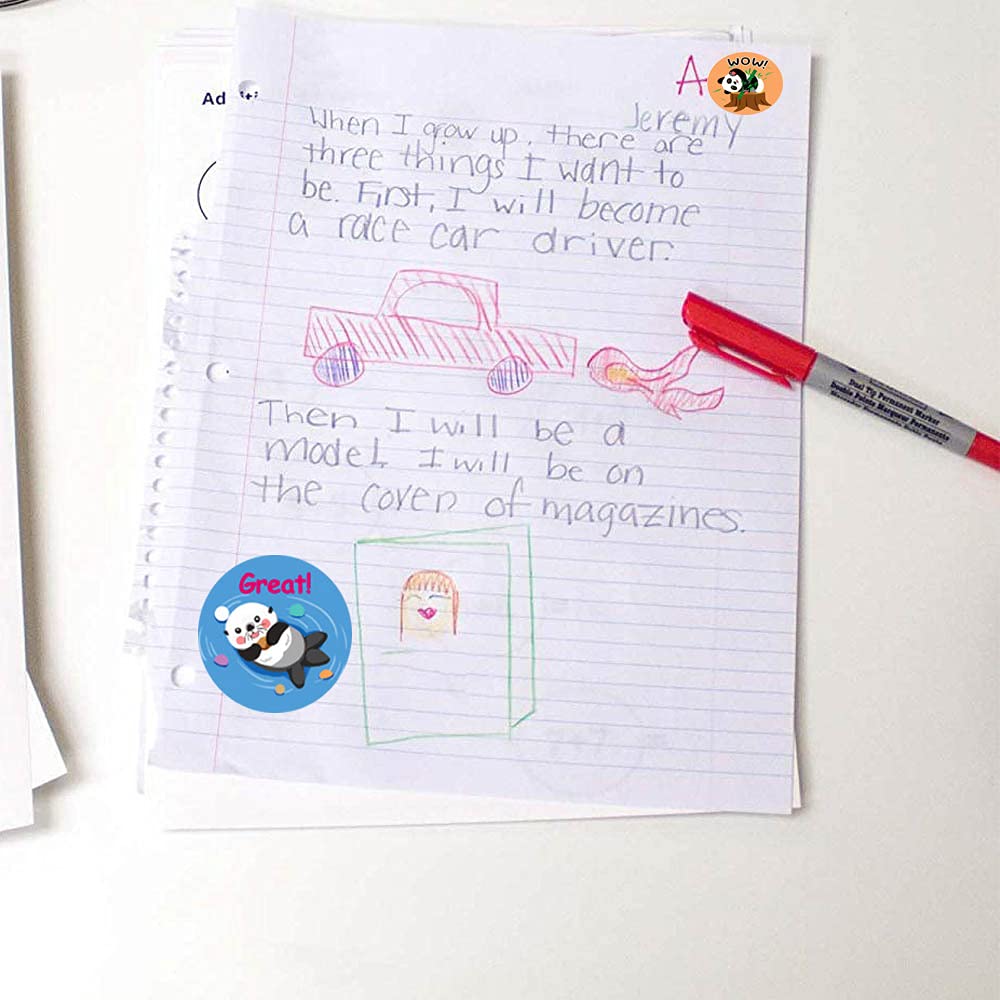 A
WOW!
Jeremy
Ad
When I grow up, there are
three things I want to
be. First, I will become
a race car driver.
Then I will be a
model. I will be on
the cover of magazines.
Great!
Dual Tip Permanent Marker
Double Pointe Marqueur Permanente